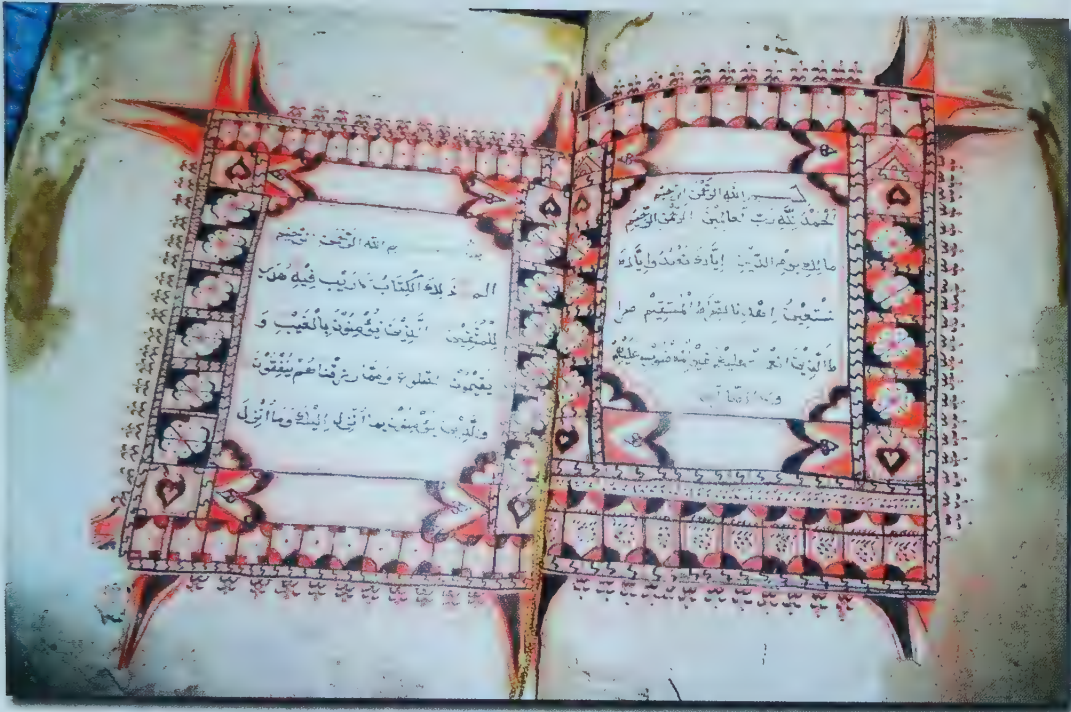 بسم الله الرحمن الرحيم
الحمد لله رب العالمين الرحمن الرحيم
مالك يوم الدين إياك نعبد وإياك
نستعين اهدنا الصراط المستقيم صرا
ط الذين انعمت عليهم غير المغضوب عليهم
ولا الضآلين
بسم الله الرحمن الرحيم
الم ذلك الكتاب لا ريب فيه هدى
للمتقين الذين يؤمنون بالغيب و
يقيمون الصلوة ومما رزقناهم ينفقون
والذين يؤمنون بما أنزل إليك وما أنزل